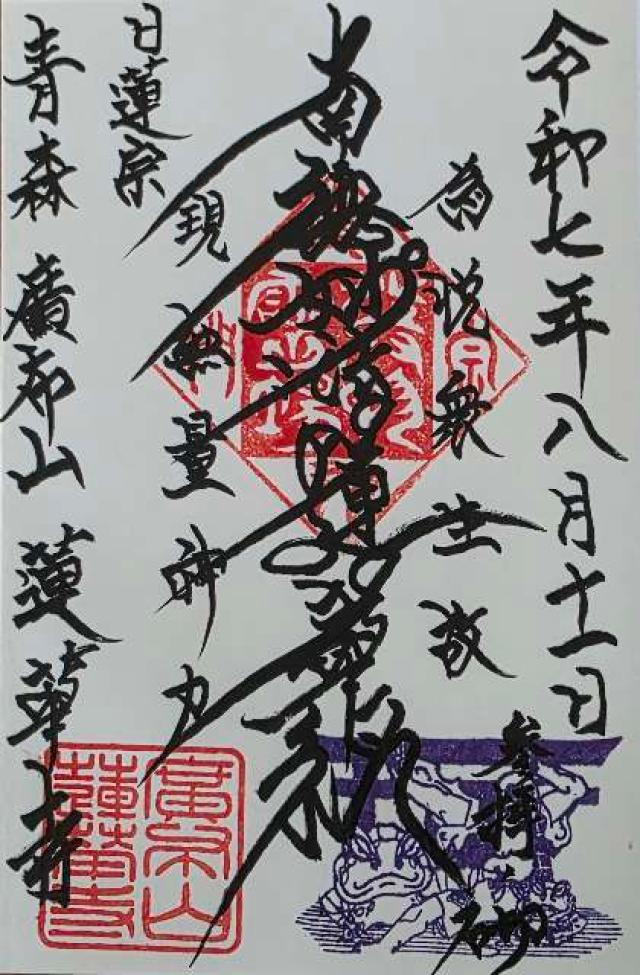 令和七年八月十一日
参拝之砌
為悦衆生故
南無妙法蓮華経
現無量神力
日蓮宗
青森 廣布山 蓮華寺
廣布山
蓮華寺